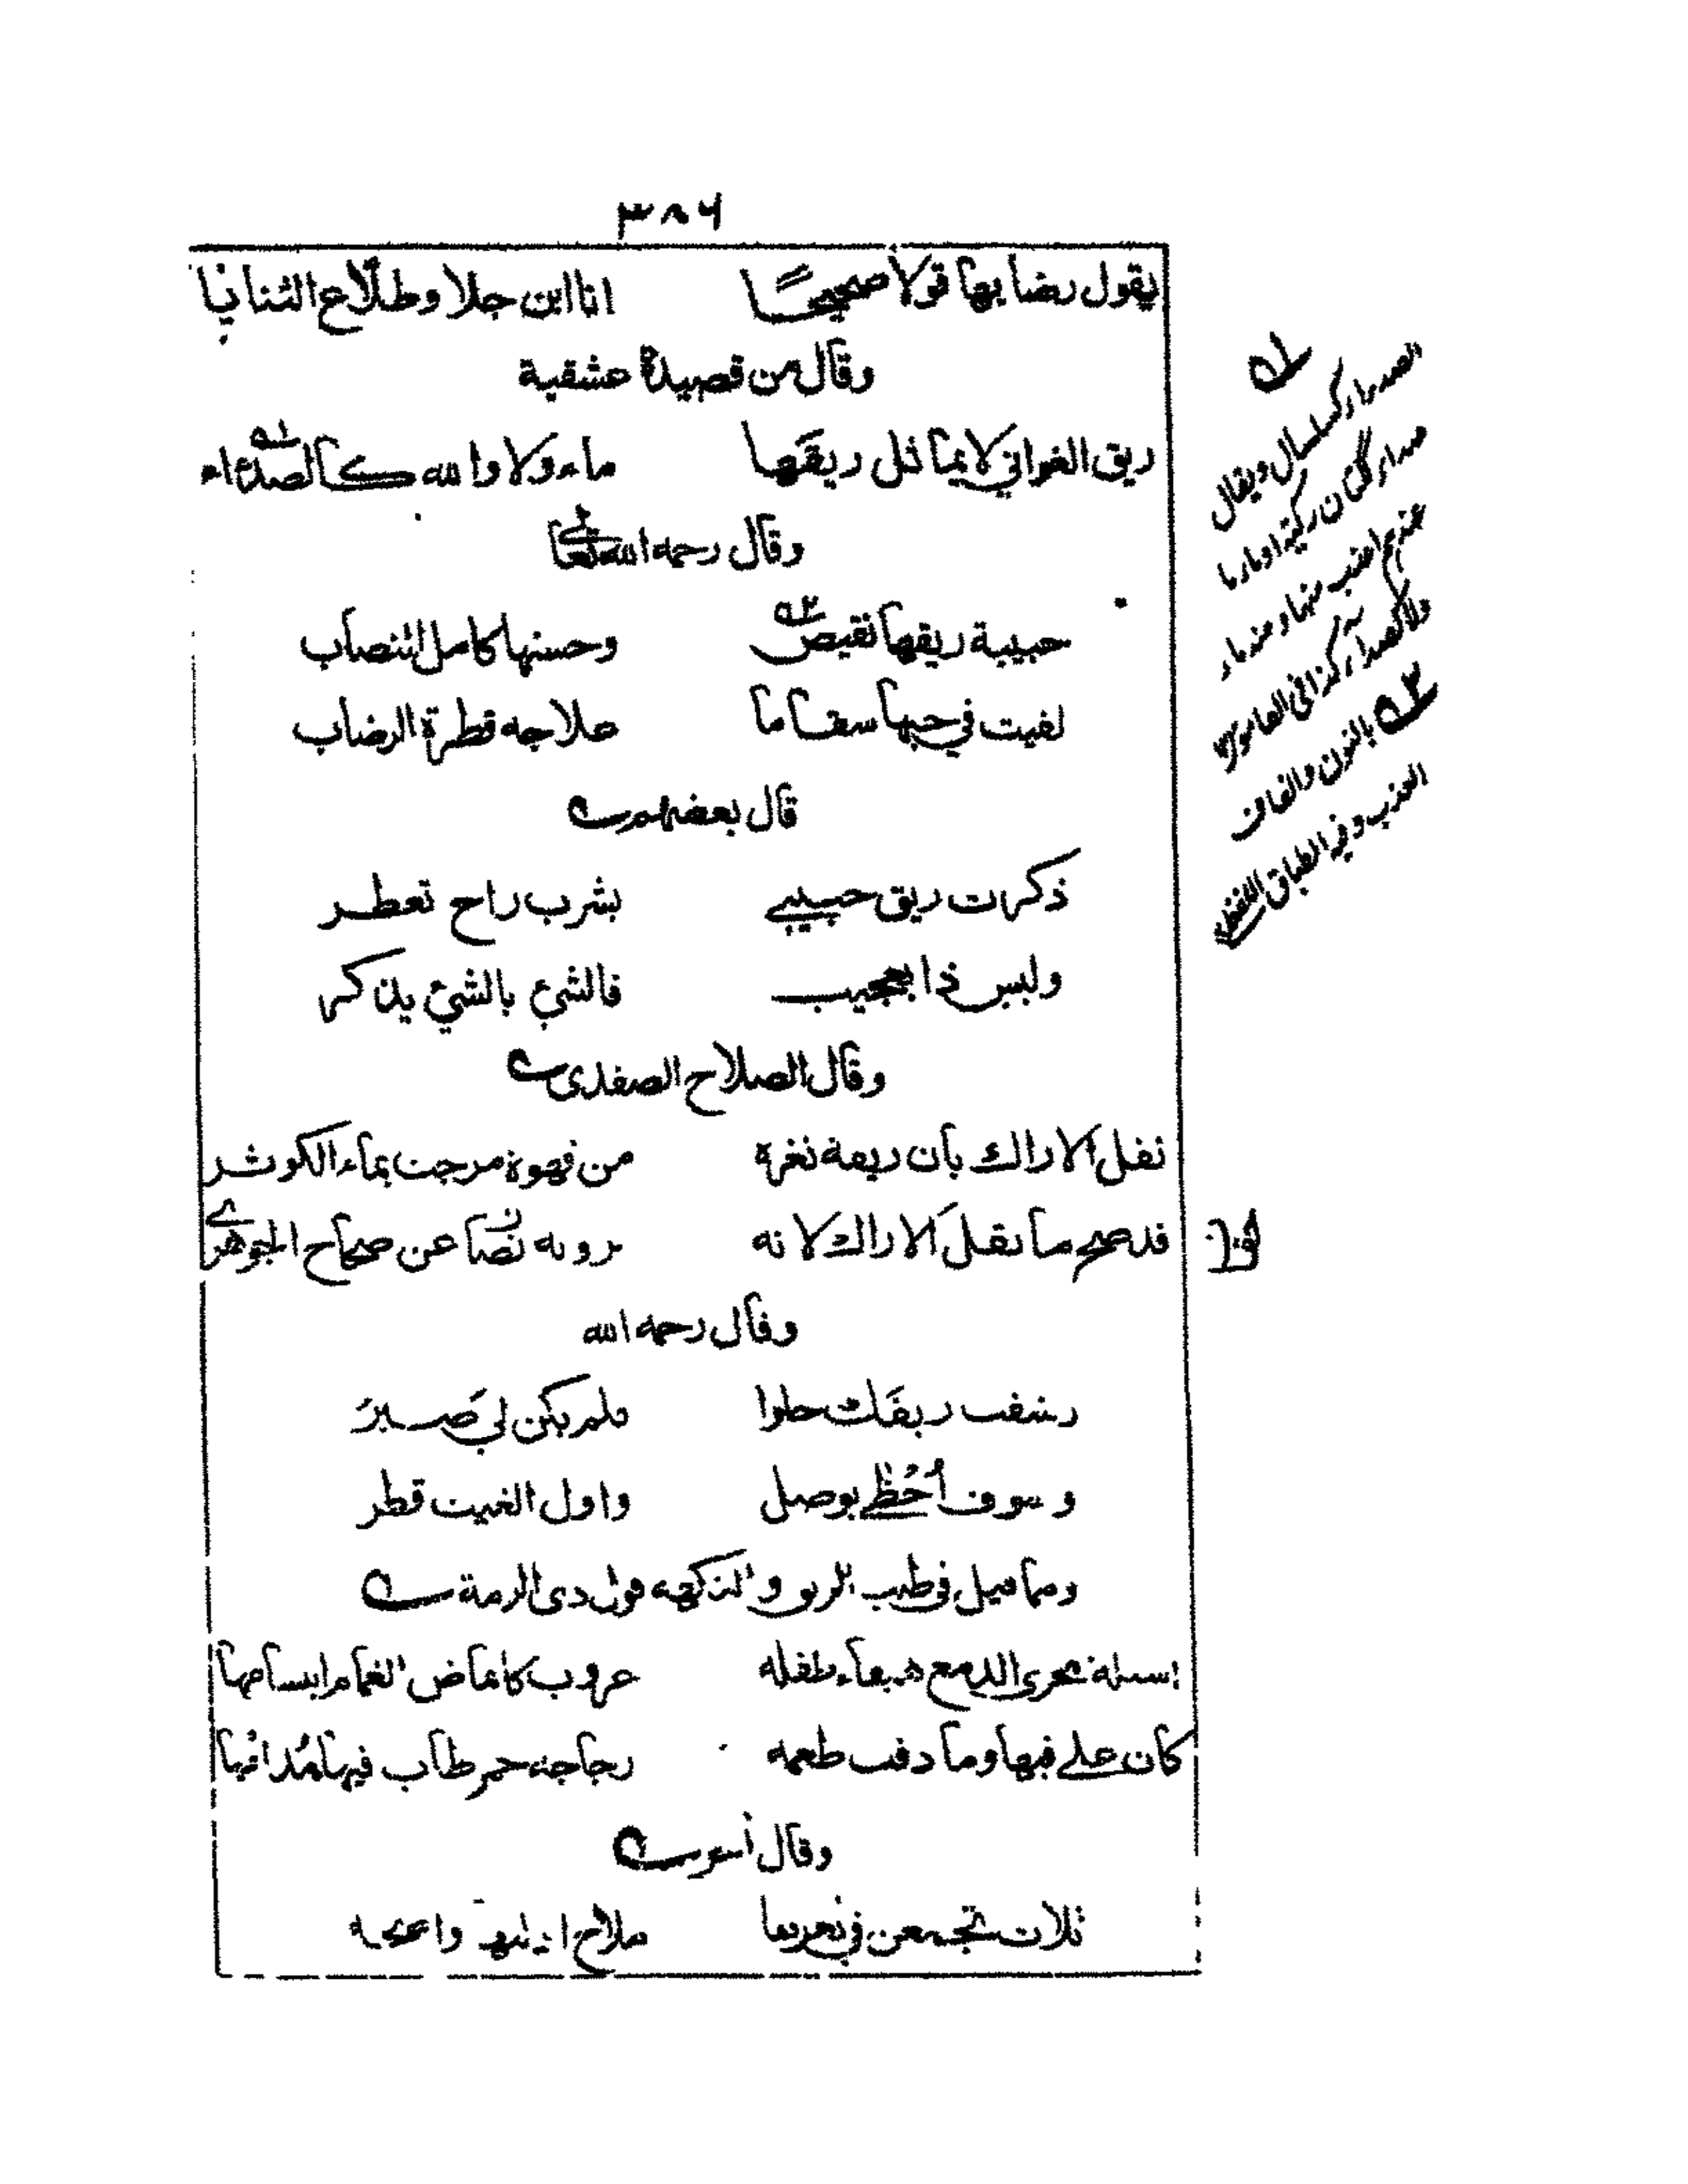 ٣٨٦
يقول رضابها قولا صحيحًا انا ابن جلا وطلّاع الثنايا
وقال من قصيدة عشقية
ريق الغواني لا يماثل ريقَها ماء ولا والله كالصدّاء
وقال رحمه الله تعالى
حبيبة ريقها نقيص وحسنها كامل النصاب
لقيت في حبها سقاما علاجه قطرة الرضاب
قال بعضهم
ذكرت ريق حبيبي بشرب راح تعطر
وليس ذا بعجيب فالشئ بالشئ يذكر
وقال الصلاح الصفدى
نقل الاراك بان ريقة ثغره من قهوة مزجت بماء الكوثر
قد صح ما نقلَ الاراك لانه يرويه نصًا عن صحاح الجوهري
وقال رحمه الله
رشفت ريقَك حلوا فلم يكن لي صَبرُ
وسوف أُحْظٰى بوصل واول الغيث قطر
ومما قيل في طيب الريق والنكهه قول ذى الرمة
اسيلة مجرى الدمع هيفاء طفله عروب كايماض الغمام ابتسامها
كان على فيها وما ذقت طعمه زجاجة خمر طاب فيها مُدامها
وقال آخر
ثلاث تجمعن في ثغرها ملاح
الصداء كسلسال ويقال
صداء ككتان ركية او ماء ما
عندهم اعذب منها ومنه ماء
ولا كصداء كذا في القاموس
بالنون والقاف
العذب وفيه الطباق اللفظي